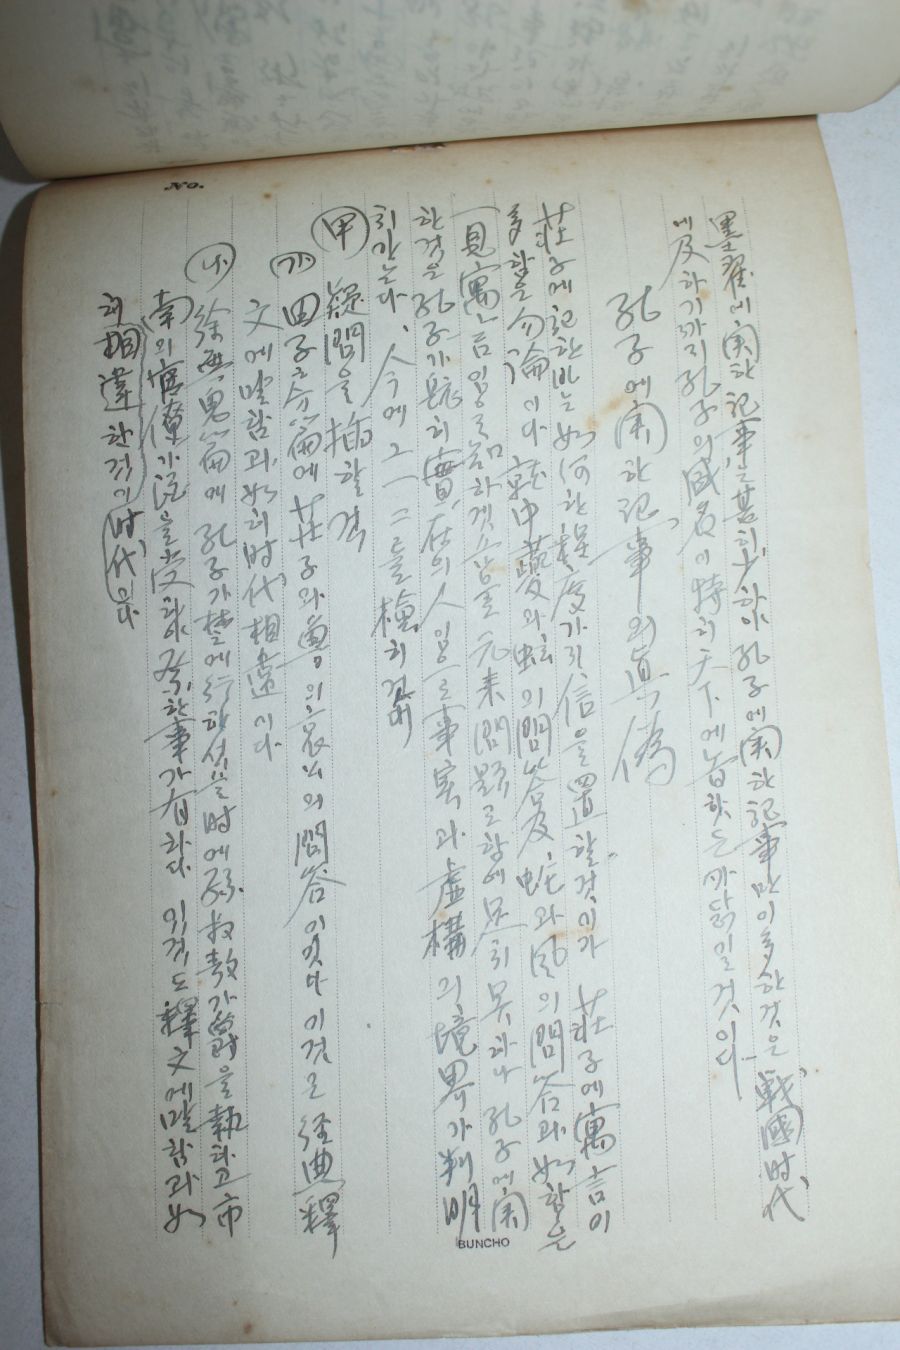 墨翟에 関한 記事는 甚히 少하야 孔子에 関한 記事만이 多한 것은 戦國時代
에 及하기까지 孔子의 盛名이 特히 天下에 놉핫는 까닭일 것이다
孔子에 関한 記事의 真偽
莊子에 記한 바는 如何한 程度가지 信을 置할 것인가 莊子에 寓言이
多함은 勿論이다 就中 夔와 蚿의 問答 及 蛇와 風의 問答과 如함은
一見 寓言임을 알겟슴으로 元来 問題로 함에 足치 못하나 孔子에 関
한 것은 孔子가 旣히 實在의 人임으로 事実과 虚構의 境界가 判明
치 안는다、今에 그 一二를 檢히 건대
甲 疑問을 揷할 것
가 田子方篇에 莊子와 魯의 哀公의 問答이 잇다 이것은 経典釋
文에 말함과 如히 時代 相違이다
나 徐無鬼篇에 孔子가 楚에 行하섯을 時에 孫叔敖가 爵을 執하고 市
南의 宜僚가 酒를 受하야 祭한 事가 有하다 이것도 釋文에 말함과 如
히 相違한 것이 時代이다
No.
BUNCHO